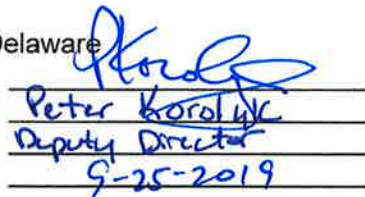 Delaware
Peter Korolyk
Deputy Director
9-25-2019